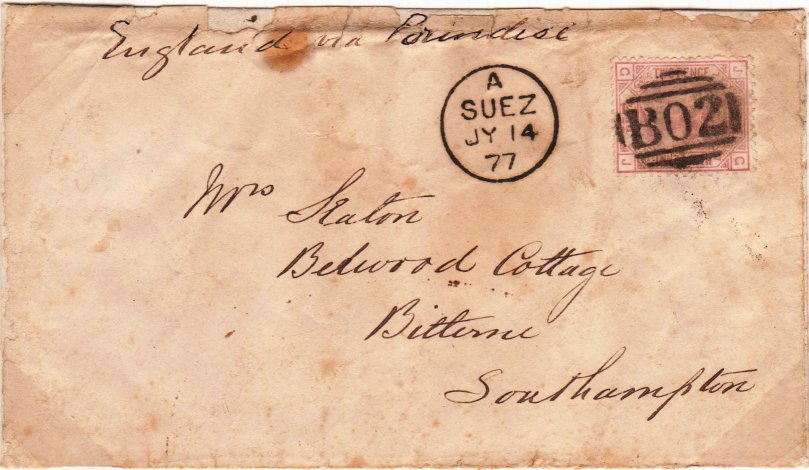 England via Porindisi
A
SUEZ
JY 14
77
B02
J
C
C
J
Mrs Seaton
Bedwood Cottage
Bitterne
Southampton